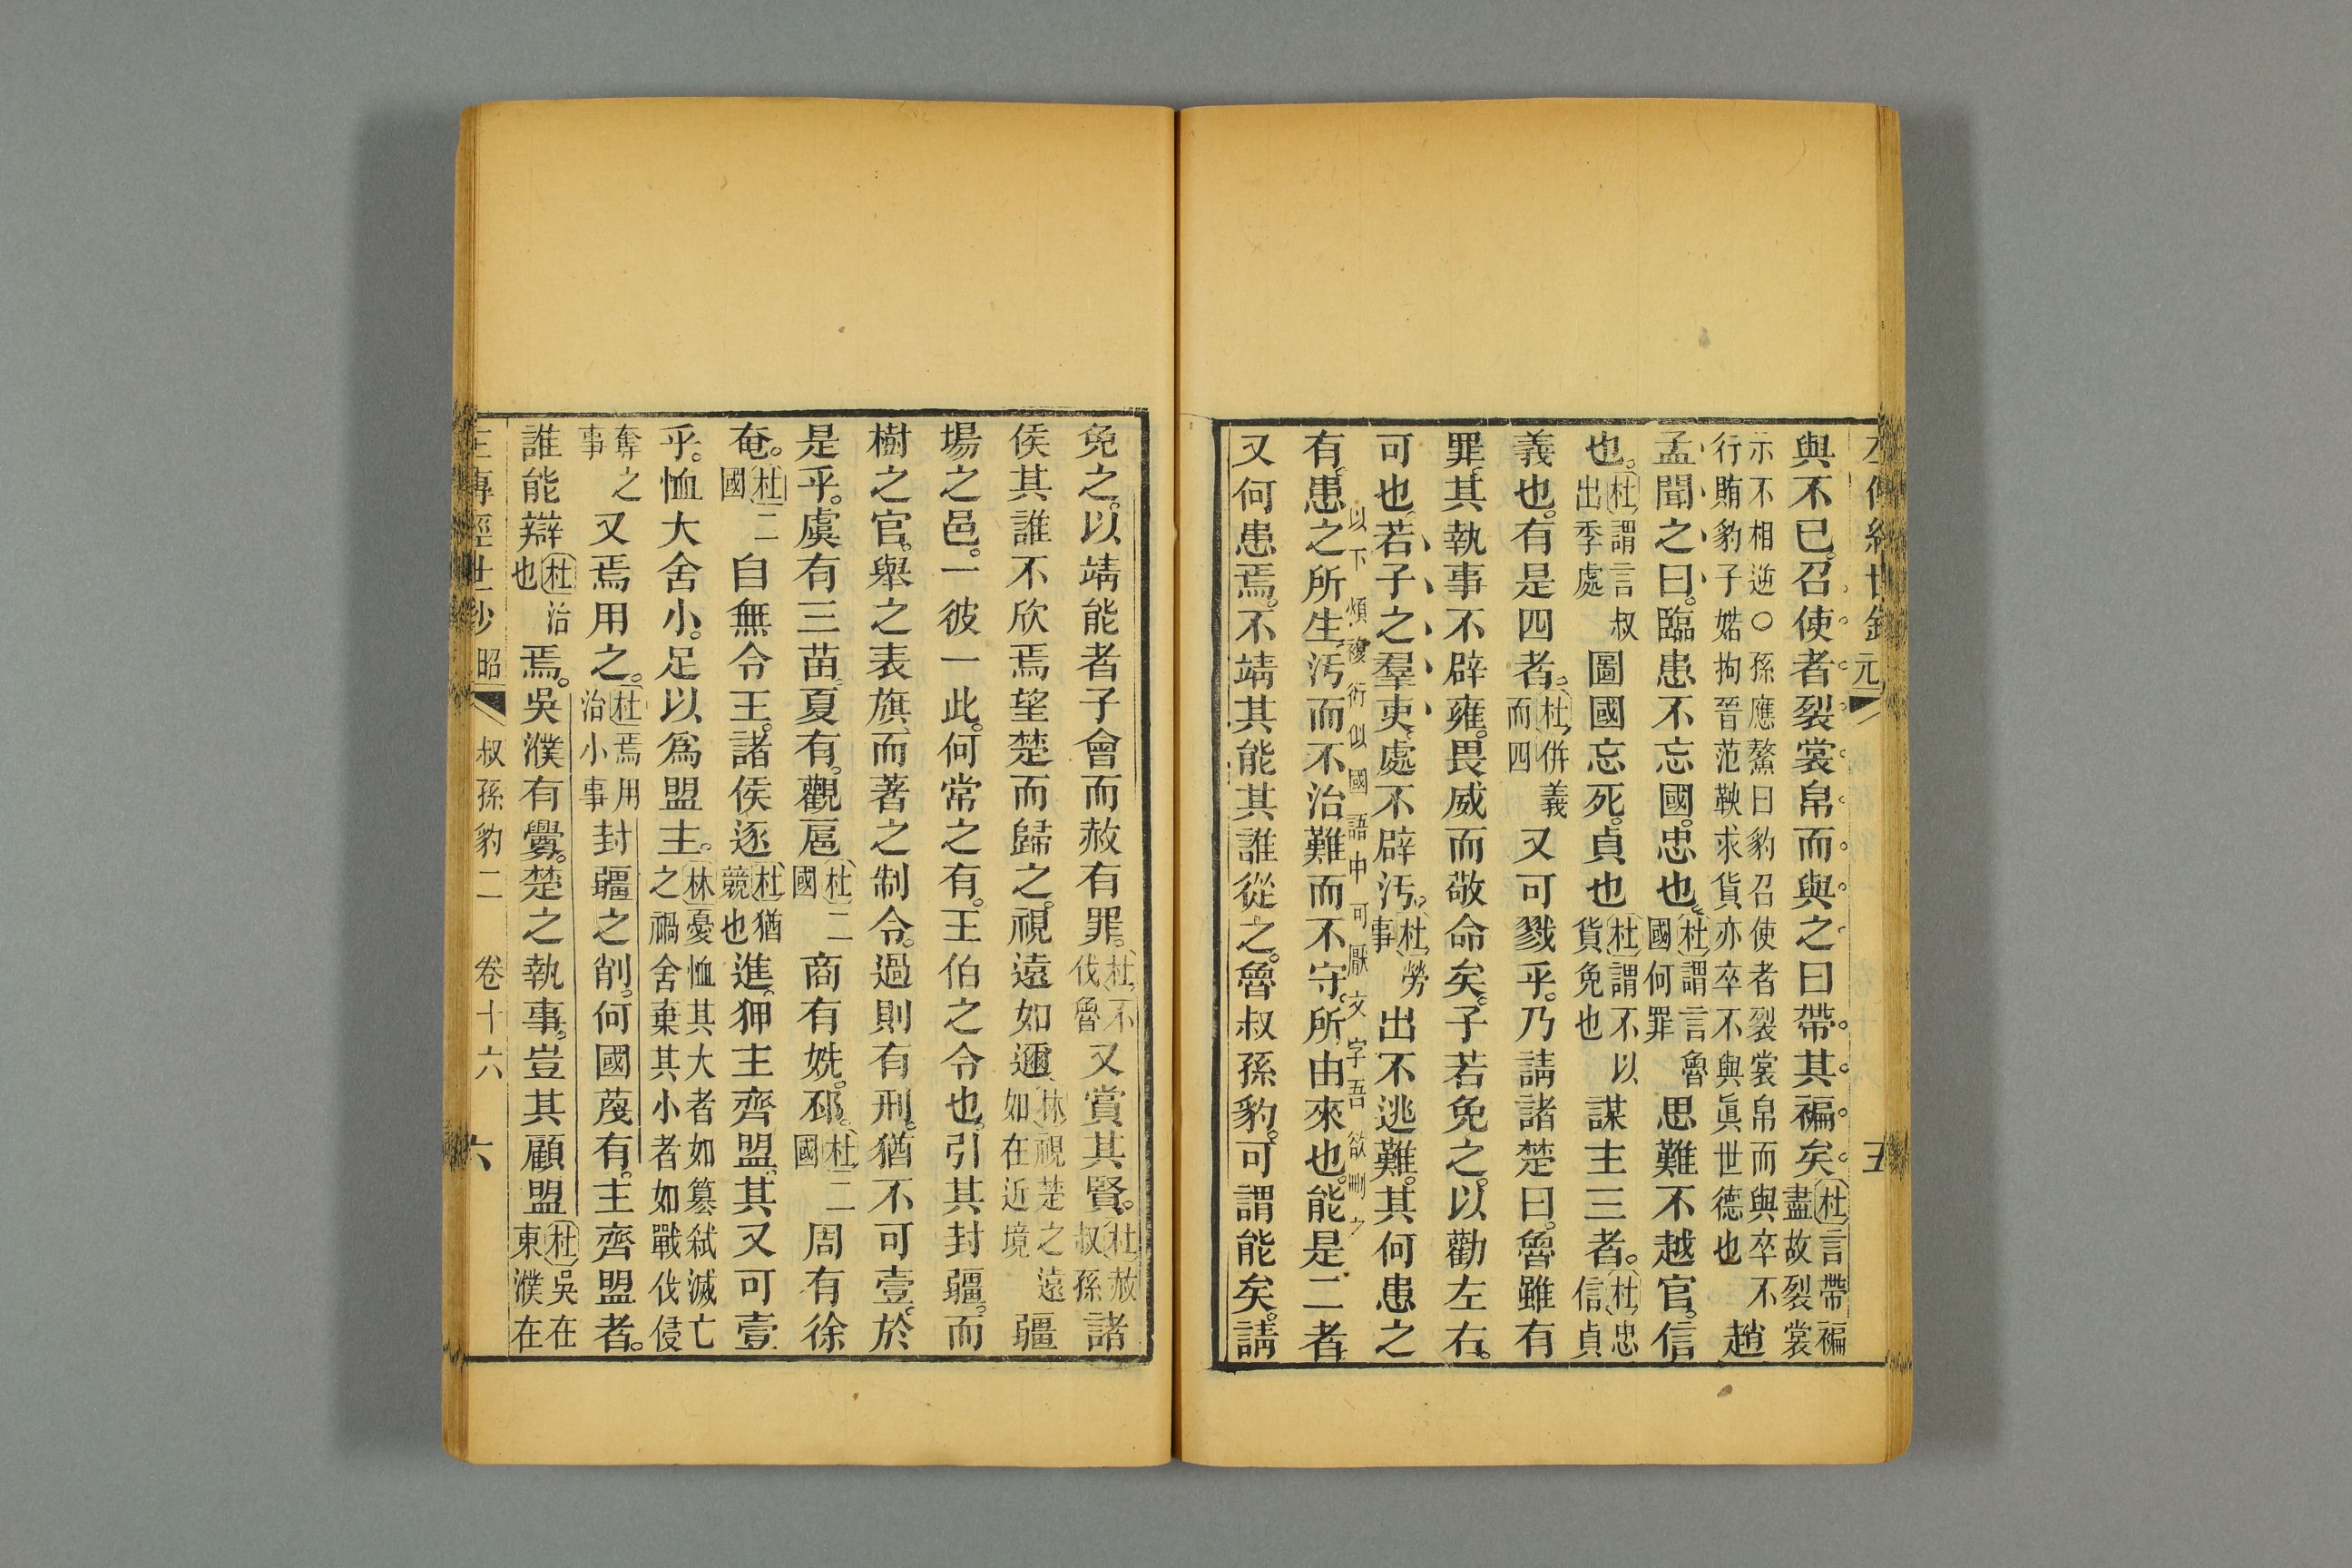 元
五
與不已。召使者裂裳帛而與之曰帶其褊矣杜言帶褊盡故裂裳
示不相逆〇孫應鰲曰豹召使者裂裳帛而與卒不行賄豹子婼拘晉范鞅求貨亦卒不與眞世德也趙
孟聞之曰。臨患不忘國。忠也。杜謂言魯國何罪思難不越官。信
也。杜謂言叔出季處圖國忘死。貞也杜謂不以貨免也謀主三者。杜忠信貞
義也。有是四者。杜併義而四又可戮乎。乃請諸楚曰。魯雖有
罪。其執事不辟雍。畏威而敬命矣。子若免之。以勸左右。
可也。若子之羣吏。處不辟汚。杜勞事出不逃難。其何患之
以下煩複衍似國語中可厭文字吾欲刪之
有。患之所生。汚而不治難而不守。所由來也。能是二者
又何患焉。不靖其能其誰從之。魯叔孫豹。可謂能矣。請
免之。以靖能者子會而赦有罪。杜不伐魯又賞其賢。杜赦叔孫諸
侯其誰不欣焉望楚而歸之。視遠如邇。林視楚之遠如在近境疆
場之邑。一彼一此。何常之有。王伯之令也。引其封疆。而
樹之官。舉之表旗、而著之制令。過則有刑。猶不可壹。於
是乎。虞有三苗。夏有。觀扈杜二國商有姺。邳。杜二國周有徐
奄。杜二國自無令王。諸侯逐杜猶競也進。狎主齊盟。其又可壹
乎。恤大舍小。足以爲盟主。林憂恤其大者如簒弑滅亡之禍舍棄其小者如戰伐侵
奪之事又焉用之。杜焉用治小事封疆之削。何國蔑有。主齊盟者。
誰能辯杜治也焉。吳濮有釁。楚之執事。豈其顧盟杜吳在東濮在
昭 叔孫豹二 卷十六 六